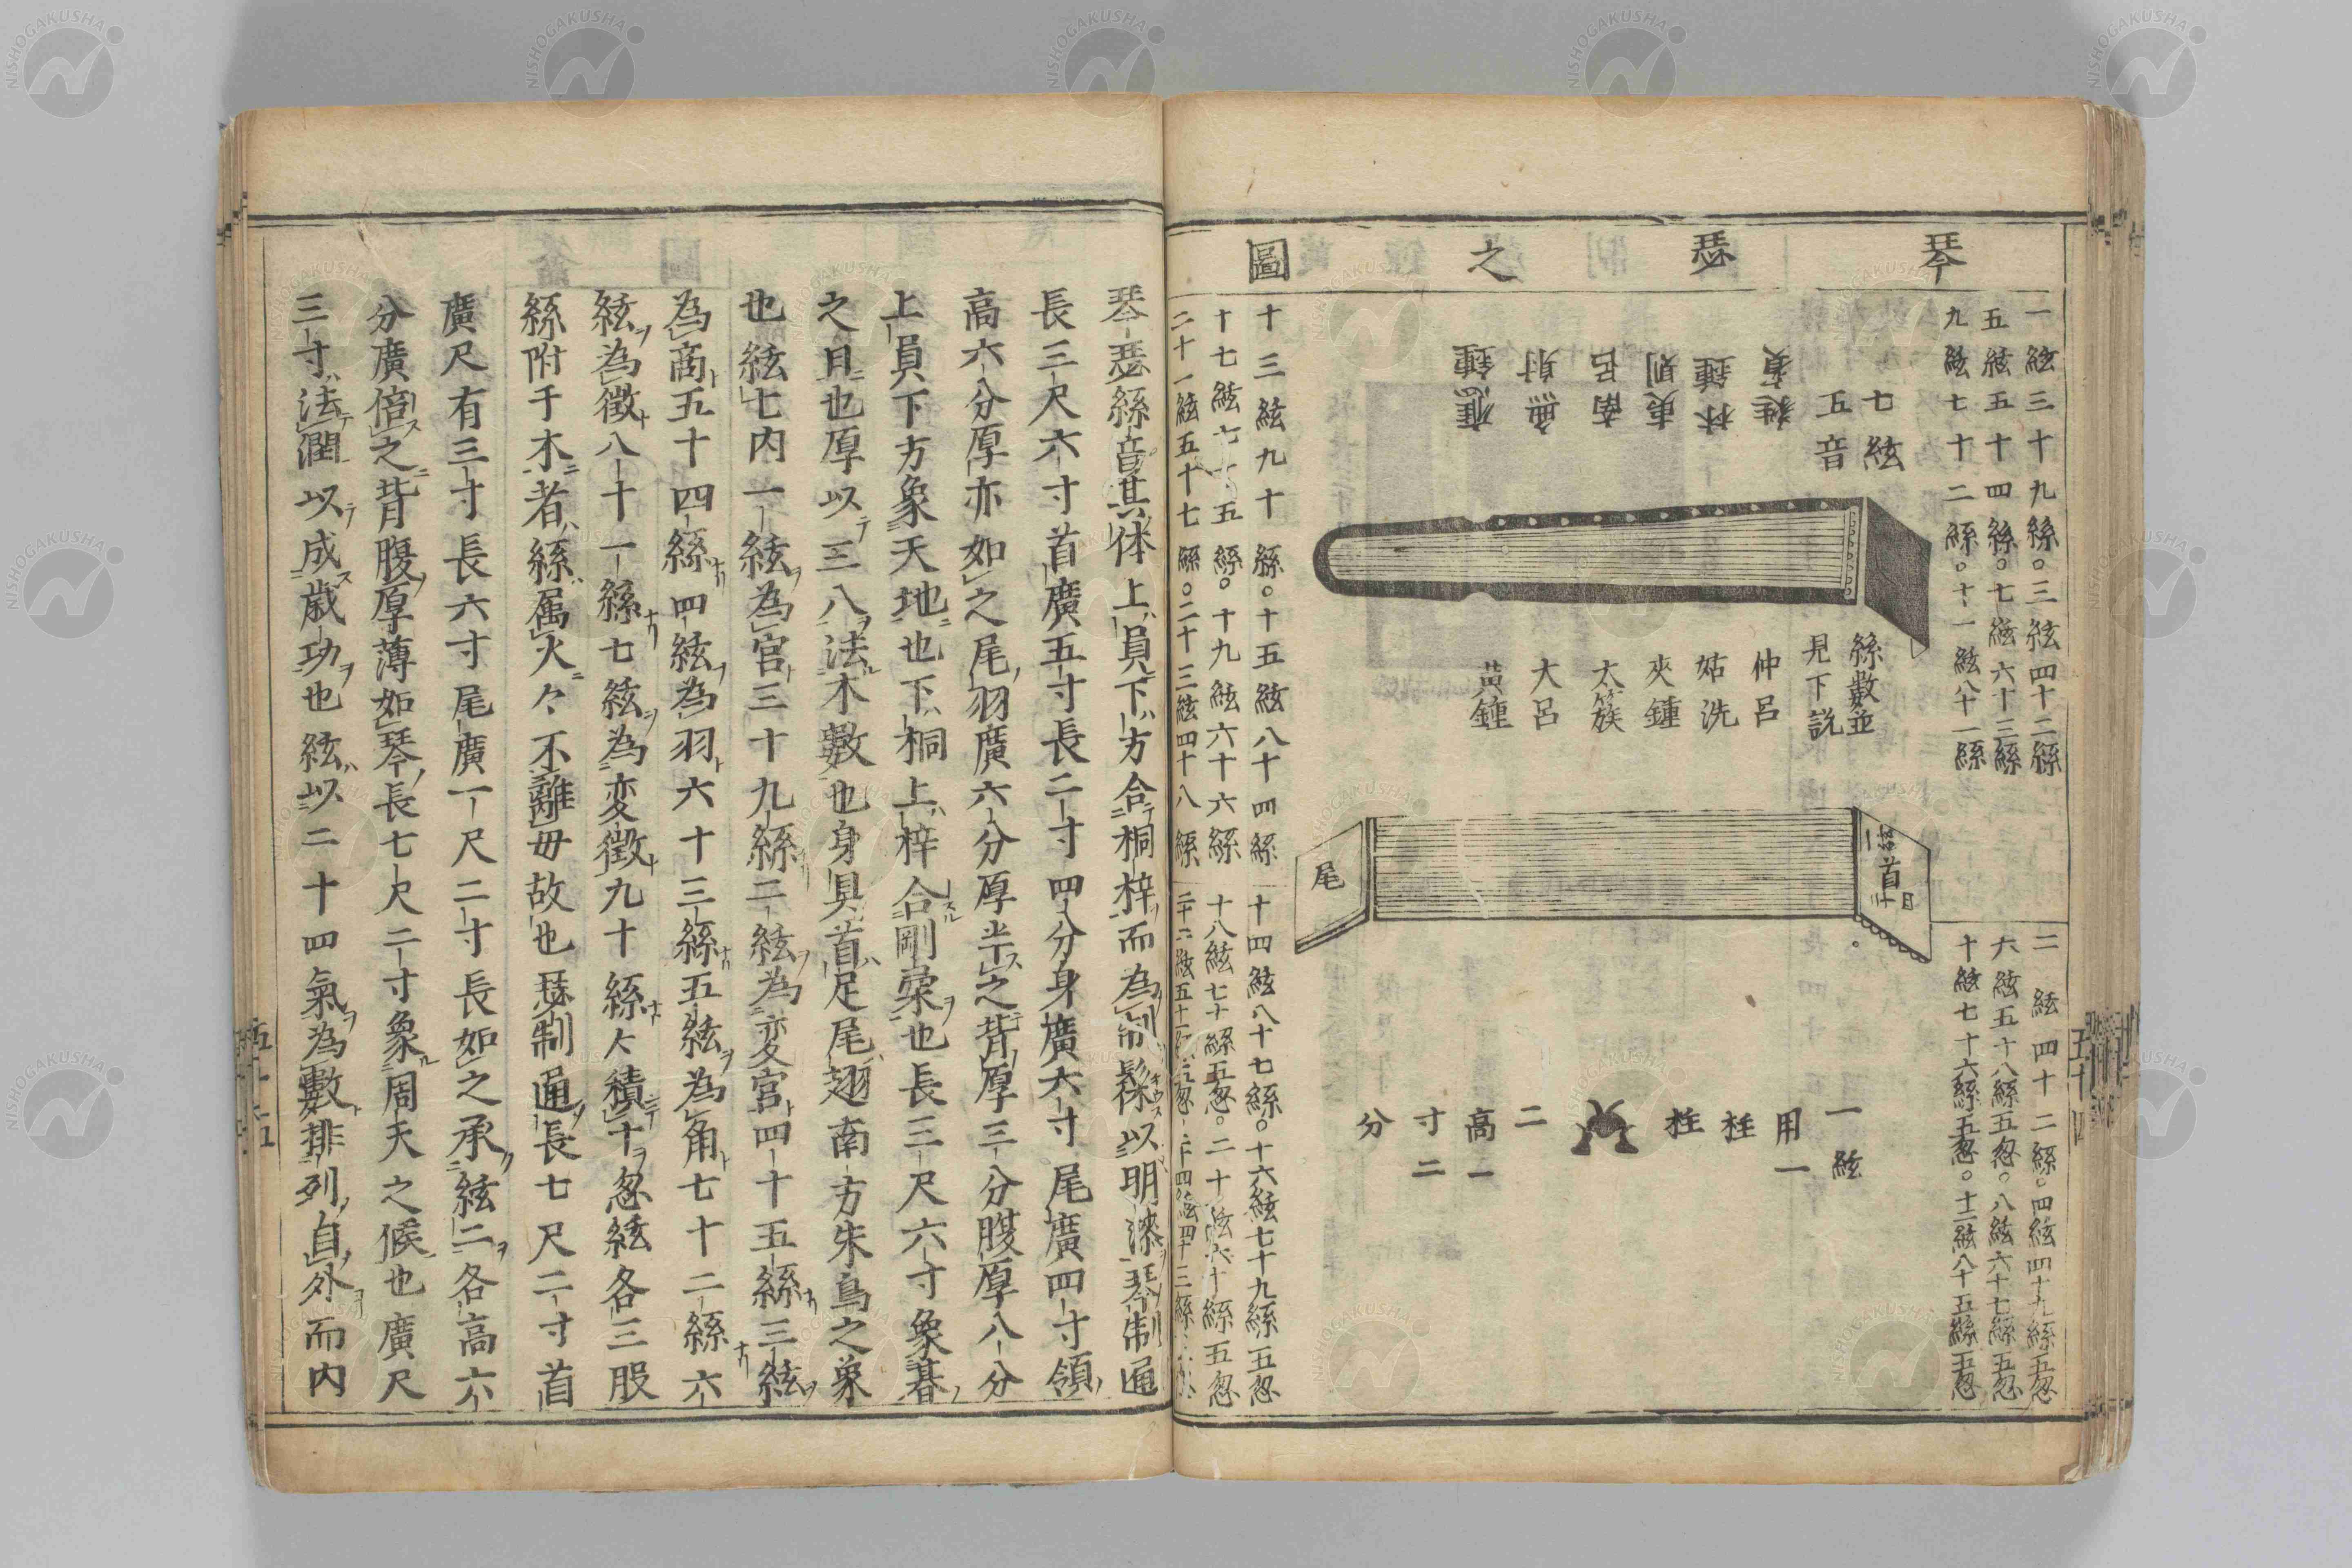 琴瑟之圖
一絃三十九絲。三絃四十二絲
五絃五十四絲。七絃六十三絲
九絃七十二絲。十一絃八十一絲
二絃四十二絲。四絃四十九絲五忽
六絃五十八絲五忽。八絃六十七絲五忽
十絃七十六絲五忽。十二絃八十五絲五忽
七絃
五音
蕤賓
林鍾
夷則
南呂
無射
應鍾
絲數並
見下説
仲呂
姑洗
夾鍾
太簇
大呂
黃鍾
首
尾
一絃
用一
柱
柱
二
高一
寸二
分
十三絃九十絲。十五絃八十四絲
十七絃七十五絲。十九絃六十六絲
二十一絃五十七絲。二十三絃四十八絲
十四絃八十七絲。十六絃七十九絲五忽
十八絃七十絲五忽。二十絃六十絲五忽
五十四
琴瑟絲音其体上員下方合桐梓而為制髹以明漆琴制通
長三尺六寸首廣五寸長二寸四分身廣六寸尾廣四寸領
高六分厚亦如之尾羽廣六分厚半之背厚三分腹厚八分
上員下方象天地也下桐上梓合剛柔也長三尺六寸象碁
之月也厚以三八法木數也身具首足尾翅南方朱鳥之象
也絃七内一絃為宮三十九絲二絃為変宮四十五絲三絃
為商五十四絲四絃為羽六十三絲五絃為角七十二絲六
絃為徵八十一絲七絃為変徵九十絲々積十忽絃各三股
絲附于木者絲属火々不離毋故也瑟制通長七尺二寸首
廣尺有三寸長六寸尾廣一尺二寸長如之承絃二各高六
分廣倍之背腹厚薄如琴長七尺二寸象周天之候也廣尺
三寸法潤以成歳功也絃以二十四氣為數排列自外而内
五十五
NISHOGAKUSHA